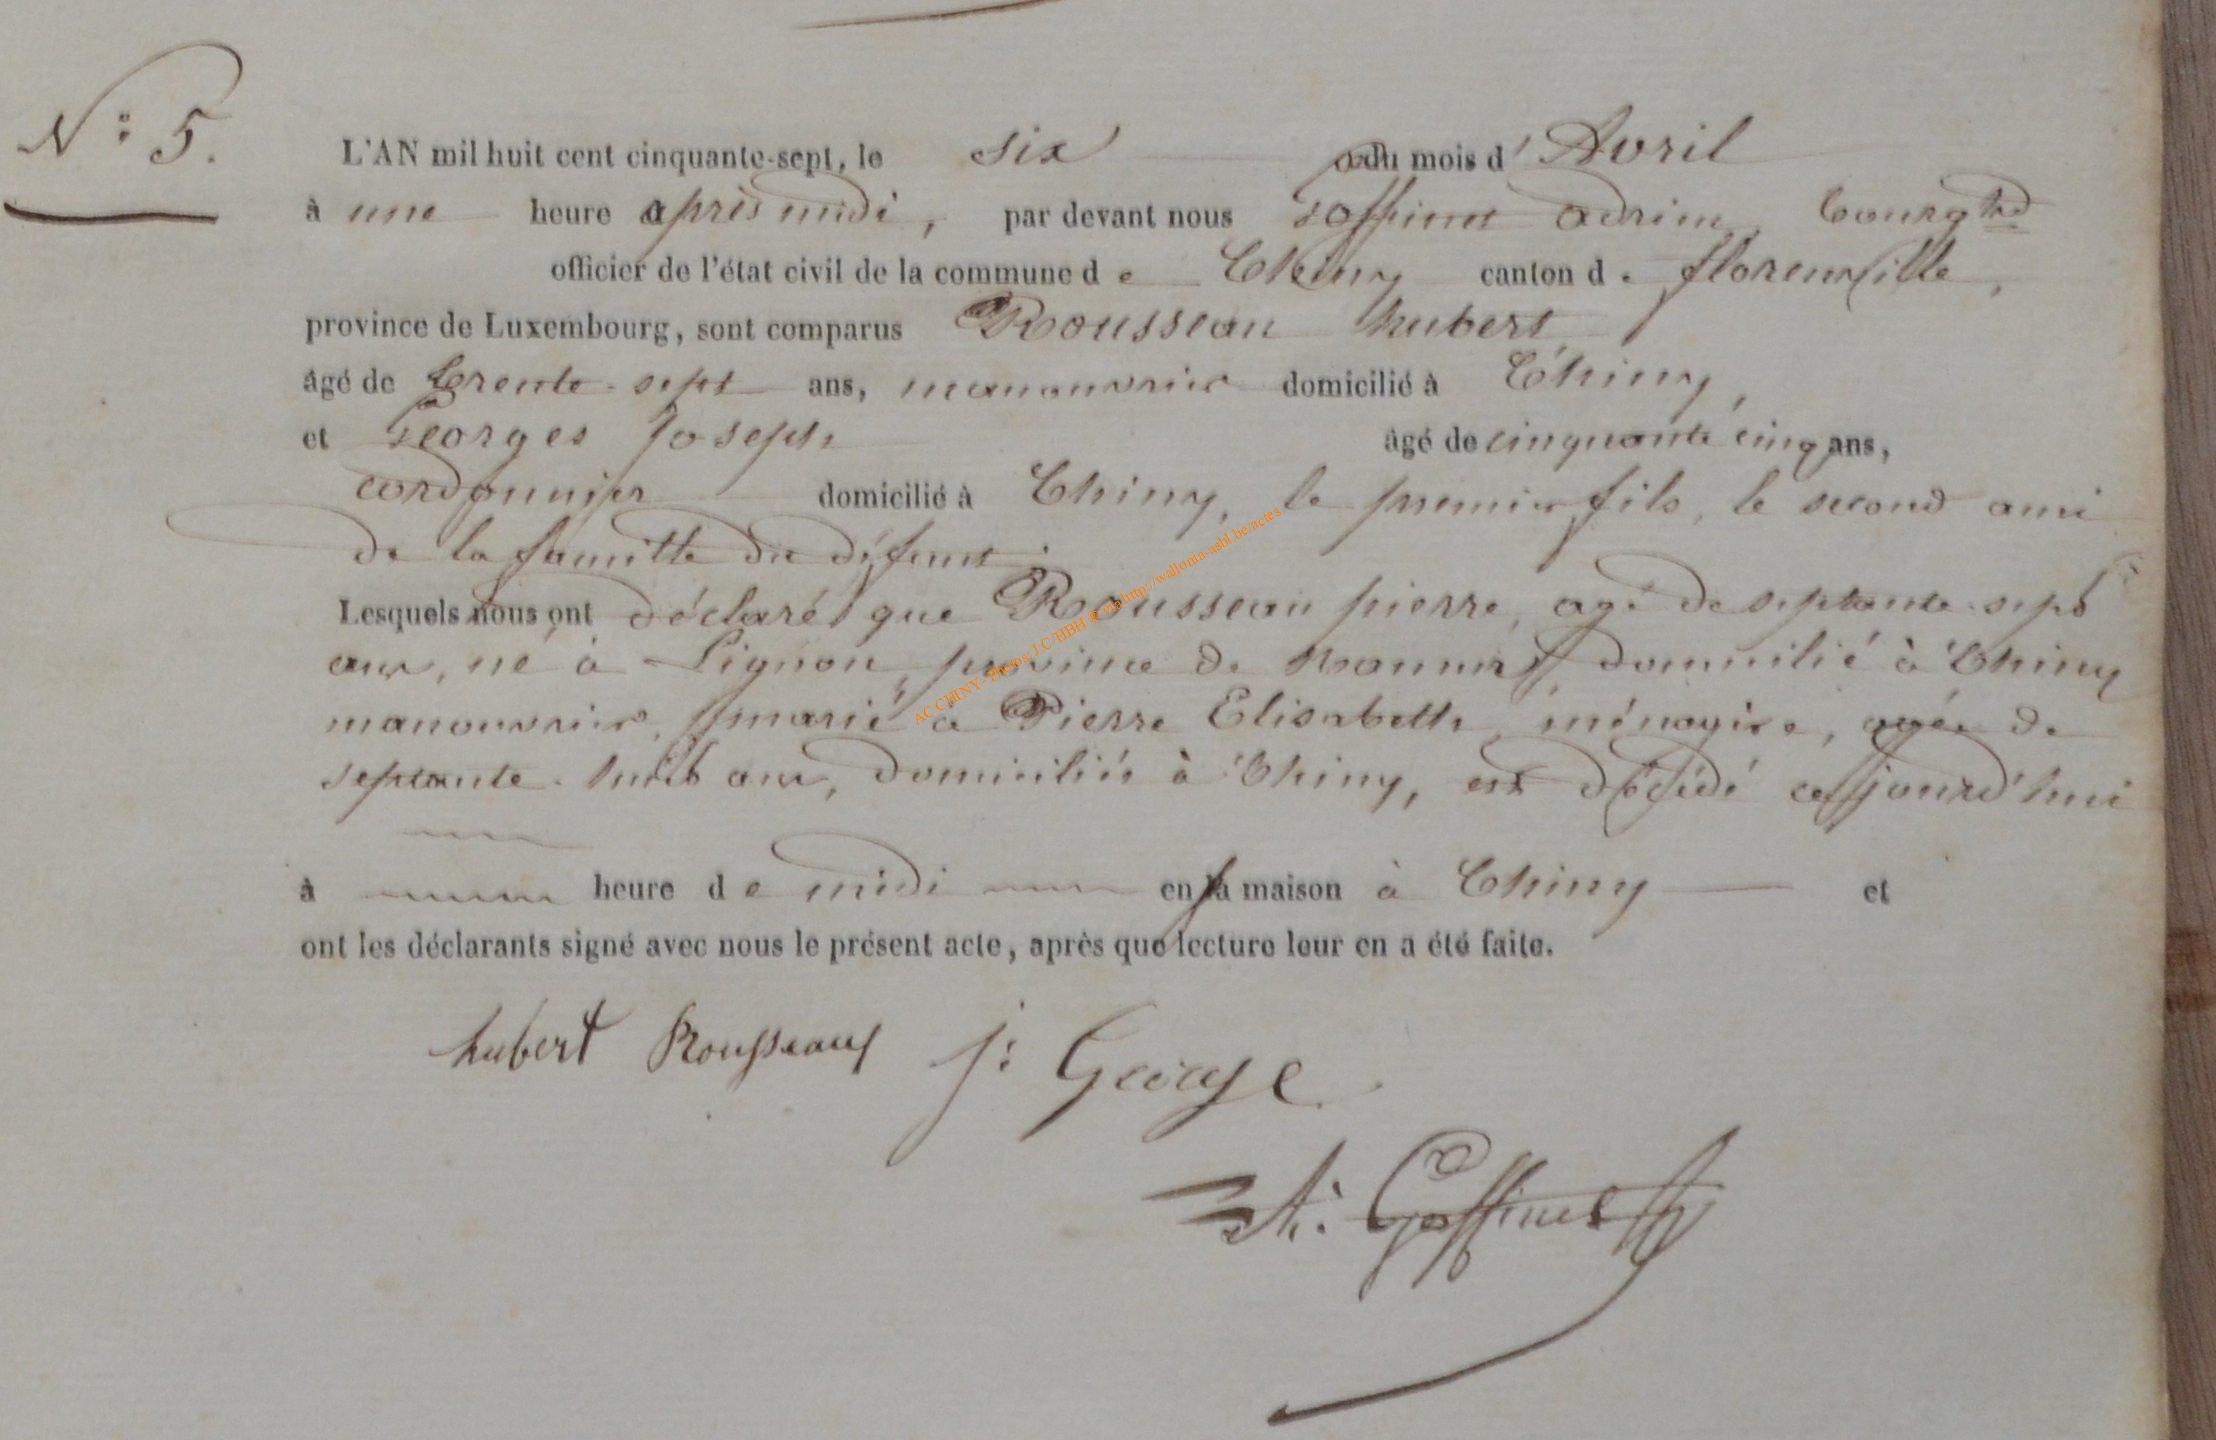 N° 5.
L'AN mil huit cent cinquante-sept, le six du mois d'Avril
à une heure après midi, par devant nous Goffinet Adrien, bourg
officier de l'état civil de la commune de Chiny canton de florenville,
province de Luxembourg, sont comparus Rousseau hubert
âgé de trente-sept ans, manouvrier domicilié à Chiny,
et Georges Joseph âgé de cinquante cinq ans,
cordonnier domicilié à Chiny, le premier fils, le second ami
de la famille du défunt.
Lesquels nous ont déclaré que Rousseau pierre, agé de septante-sept
ans, né à Lignon, province de Namur, domicilié à Chiny
manouvrier, marié à Pierre Elisabeth, ménagère, agée de
septante-huit ans, domiciliée à Chiny, est décédé cejourd'hui
à heure de midi en sa maison à Chiny et
ont les déclarants signé avec nous le présent acte, après que lecture leur en a été faite.
hubert Rousseaux J: George
A: Goffinet
AC CHINY - Photos J.C TIBH @ via http://wallonia-asbl.be/actes